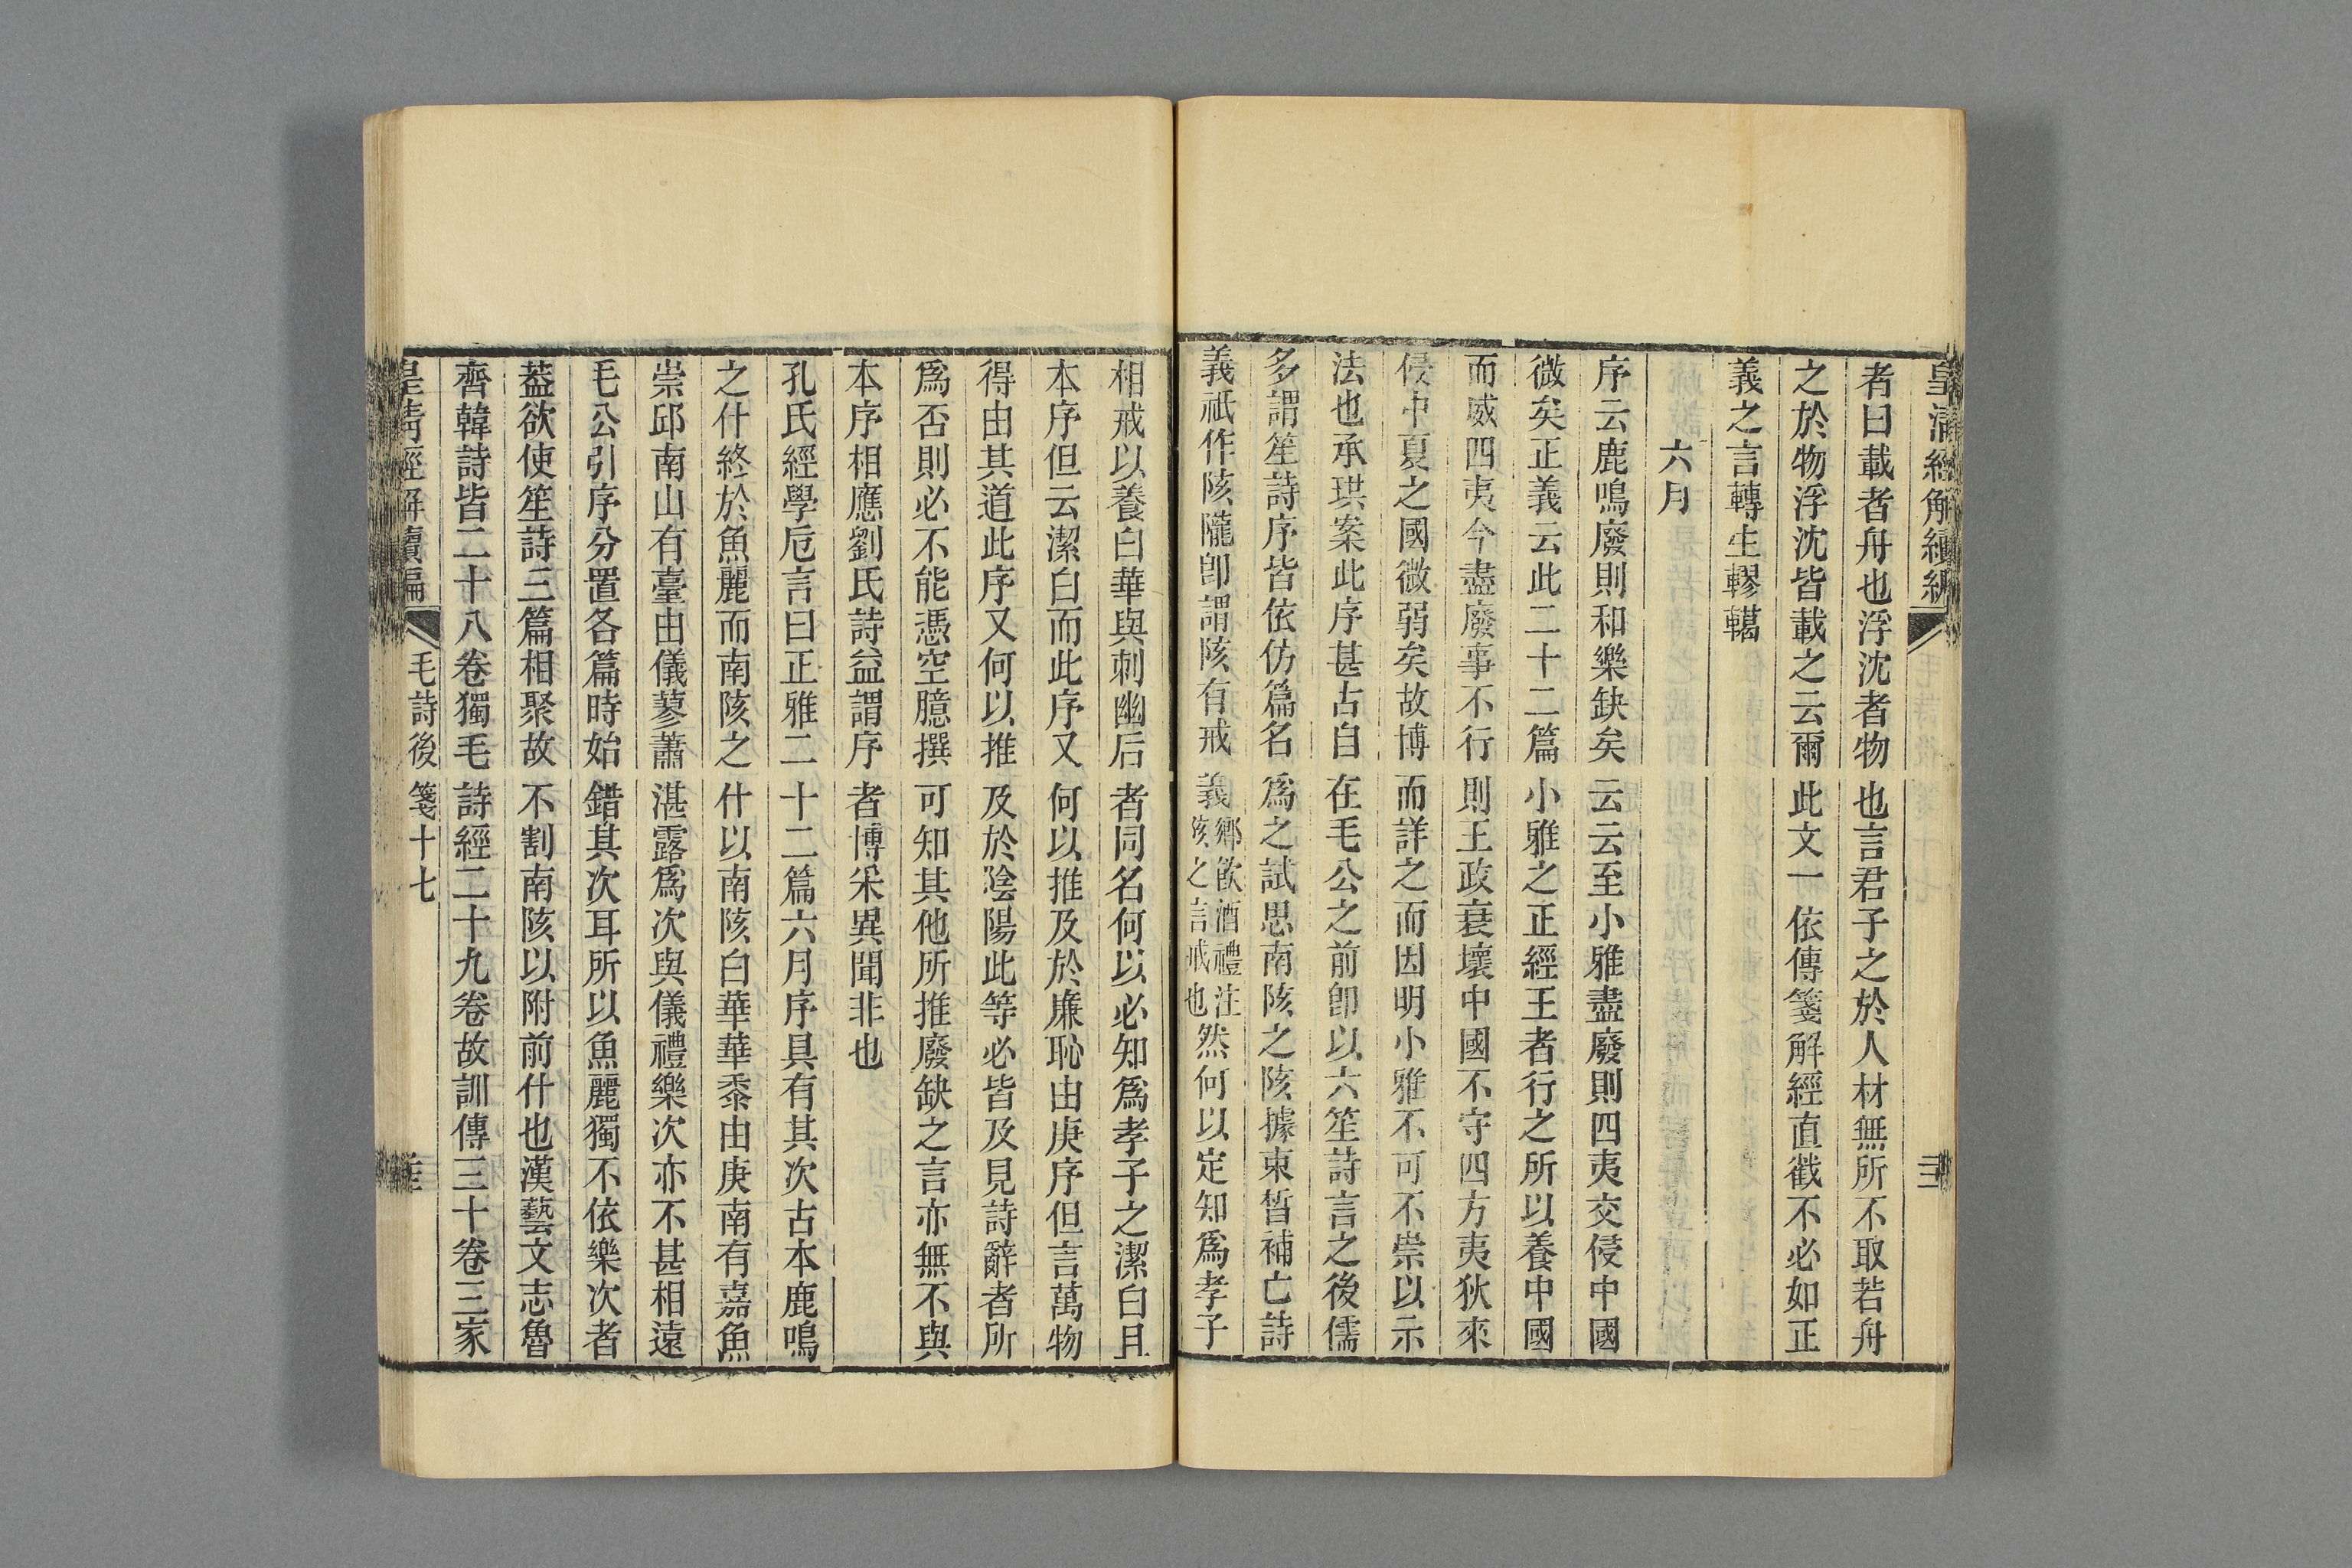 皇清經解續編
者曰載者舟也浮沈者物也言君子之於人材無所不取若舟
之於物浮沈皆載之云爾此文一依傳箋解經直截不必如正
義之言轉生轇轕
六月
序云鹿鳴廢則和樂缺矣云云至小雅盡廢則四夷交侵中國
微矣正義云此二十二篇小雅之正經王者行之所以養中國
而威四夷今盡廢事不行則王政衰壞中國不守四方夷狄來
侵中夏之國微弱矣故博而詳之而因明小雅不可不崇以示
法也承珙案此序甚古自在毛公之前卽以六笙詩言之後儒
多謂笙詩序皆依仿篇名爲之試思南陔之陔據束皙補亡詩
義祇作陔隴卽謂陔有戒義鄉飲酒禮注陔之言戒也然何以定知爲孝子
相戒以養白華與刺幽后者同名何以必知爲孝子之潔白且
本序但云潔白而此序又何以推及於廉恥由庚序但言萬物
得由其道此序又何以推及於陰陽此等必皆及見詩辭者所
爲否則必不能憑空臆撰可知其他所推廢缺之言亦無不與
本序相應劉氏詩益謂序者博采異聞非也
孔氏經學卮言曰正雅二十二篇六月序具有其次古本鹿鳴
之什終於魚麗而南陔之什以南陔白華華黍由庚南有嘉魚
崇邱南山有臺由儀蓼蕭湛露爲次與儀禮樂次亦不甚相遠
毛公引序分置各篇時始錯其次耳所以魚麗獨不依樂次者
葢欲使笙詩三篇相聚故不割南陔以附前什也漢藝文志魯
齊韓詩皆二十八卷獨毛詩經二十九卷故訓傳三十卷三家
皇清經解續編
毛詩後箋十七